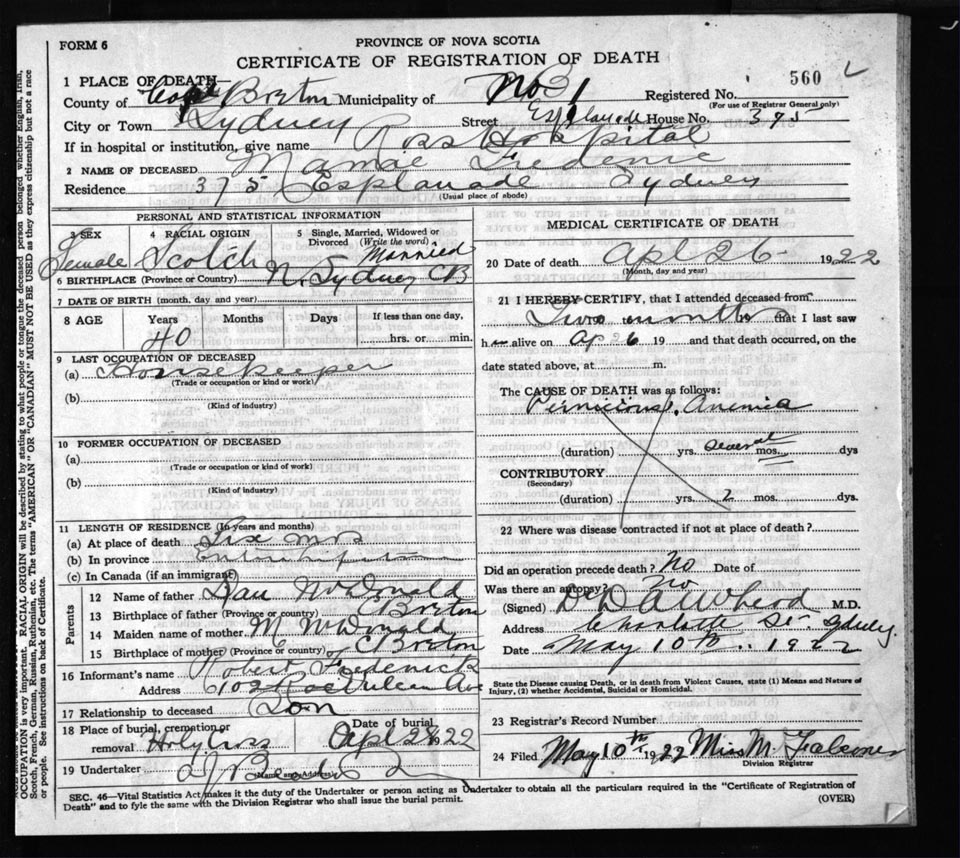 FORM 6
PROVINCE OF NOVA SCOTIA
CERTIFICATE OF REGISTRATION OF DEATH
1 PLACE OF DEATH—
560
County of Cape Breton Municipality of No 3 Registered No.
(For use of Registrar General only)
City or Town Sydney Street Esplanade House No. 375
If in hospital or institution, give name Ross Hospital
2 NAME OF DECEASED Mamae Frederic
Residence 375 Esplanade Sydney
(Usual place of abode)
PERSONAL AND STATISTICAL INFORMATION
3 SEX 4 RACIAL ORIGIN 5 Single, Married, Widowed or Divorced (Write the word)
Female Scotch Married
6 BIRTHPLACE (Province or Country) N. Sydney CB
7 DATE OF BIRTH (month, day and year)
8 AGE Years Months Days If less than one day,
40 hrs. or min.
9 LAST OCCUPATION OF DECEASED
(a) Housekeeper
(Trade or occupation or kind or work)
(b)
(Kind of industry)
10 FORMER OCCUPATION OF DECEASED
(a)
(Trade or occupation or kind of work)
(b)
(Kind of industry)
11 LENGTH OF RESIDENCE (In years and months)
(a) At place of death Six mos
(b) In province Entire life
(c) In Canada (if an immigrant)
Parents
12 Name of father Dan McDonald
13 Birthplace of father (Province or country) C Breton
14 Maiden name of mother M McDonald
15 Birthplace of mother (Province or country) C Breton
16 Informant's name Robert Frederick
Address 102
17 Relationship to deceased Son
18 Place of burial, cremation or removal Holy Cross Date of burial Apl 28 22
19 Undertaker A J
(Name and Address)
MEDICAL CERTIFICATE OF DEATH
20 Date of death Apl 26 1922
(Month, day and year)
21 I HEREBY CERTIFY, that I attended deceased from
Two months that I last saw
h alive on Ap 26 19 and that death occurred, on the
date stated above, at m.
The CAUSE OF DEATH was as follows:
Pernicious Anemia
(duration) yrs. several mos. dys
CONTRIBUTORY
(Secondary)
(duration) yrs. 2 mos. dys.
22 Where was disease contracted if not at place of death?
Did an operation precede death? No Date of
Was there an autopsy? No
(Signed) M.D.
Address Charlotte St. Sydney.
Date May 10th 1922
State the Disease causing Death, or in death from Violent Causes, state (1) Means and Nature of
Injury, (2) whether Accidental, Suicidal or Homicidal.
23 Registrar's Record Number
24 Filed May 10th 1922 Miss M. Falconer
Division Registrar
SEC. 46—Vital Statistics Act makes it the duty of the Undertaker or person acting as Undertaker to obtain all the particulars required in the "Certificate of Registration of
Death" and to fyle the same with the Division Registrar who shall issue the burial permit.
(OVER)
OCCUPATION is very important. RACIAL ORIGIN will be described by stating to what people or tongue the deceased person belonged whether English, Irish,
Scotch, French, German, Russian, Ruthenian, etc. The terms "AMERICAN" OR "CANADIAN" MUST NOT BE USED as they express citizenship but not a race
or people. See instructions on back of Certificate.